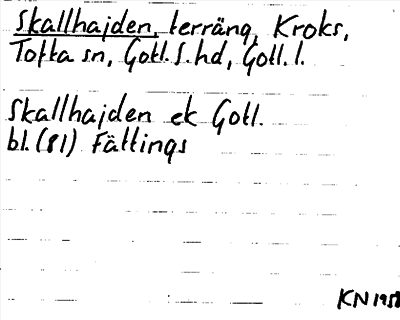 Skallhajden, terräng, Kroks,
Tofta sn, Gotl. S. hd, Gotl. l.
Skallhajden ek Gotl.
bl. (81) Fättings
KN 1958